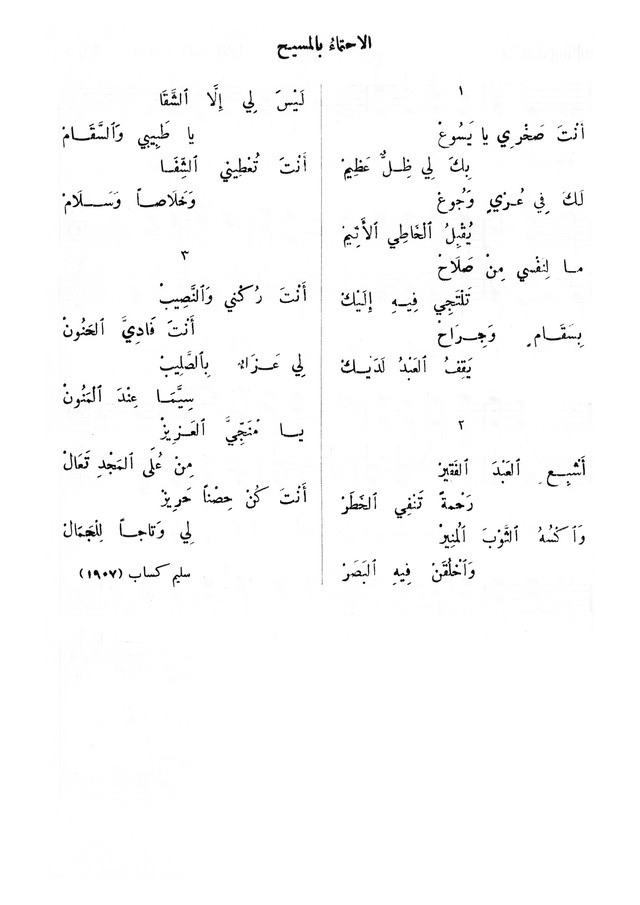 الاحتماءُ بالمسيح
١
أنْتَ صَخْرِي يا يَسُوعْ
بِكَ لِي ظِلٌّ عَظِيمْ
لَكَ فِي عُرْيٍ وَجُوعْ
يُقْبِلُ ٱلْخَاطِي ٱلْأَثِيمْ
ما لِنَفْسِي مِنْ صَلَاحْ
تَلْتَجِي فِيهِ إِلَيْكْ
بِسَقَامٍ وَجِرَاحْ
يَقِفُ ٱلعَبْدُ لَدَيْكْ
٢
أَشْبِعِ ٱلعَبْدَ ٱلفَقِيرْ
رَحْمَةً تَنْفِي ٱلخَطَرْ
وَٱكْسُهُ ٱلثَّوْبَ ٱلمُنِيرْ
وَٱخْلُقَنْ فِيهِ ٱلبَصَرْ
لَيْسَ لِي إِلَّا ٱلشَّقَا
يا طَبِيبِي وَٱلسَّقَامْ
أَنْتَ تُعْطِينِي ٱلشِّفَا
وَخَلَاصاً وَسَلَامْ
٣
أَنْتَ رُكْنِي وَٱلنَّصِيبْ
أَنْتَ فَادِيَّ ٱلحَنُونْ
لِي عَزَاءٌ بِٱلصَّلِيبْ
سِيَّمَا عِنْدَ ٱلمَنُونْ
يا مُنَجِّيَّ ٱلعَزِيزْ
مِنْ عُلَى ٱلمَجْدِ تَعَالْ
أَنْتَ كُنْ حِصْناً حَرِيزْ
لِي وَتَاجاً لِلْجَمَالْ
سليم كساب (١٩٠٧)